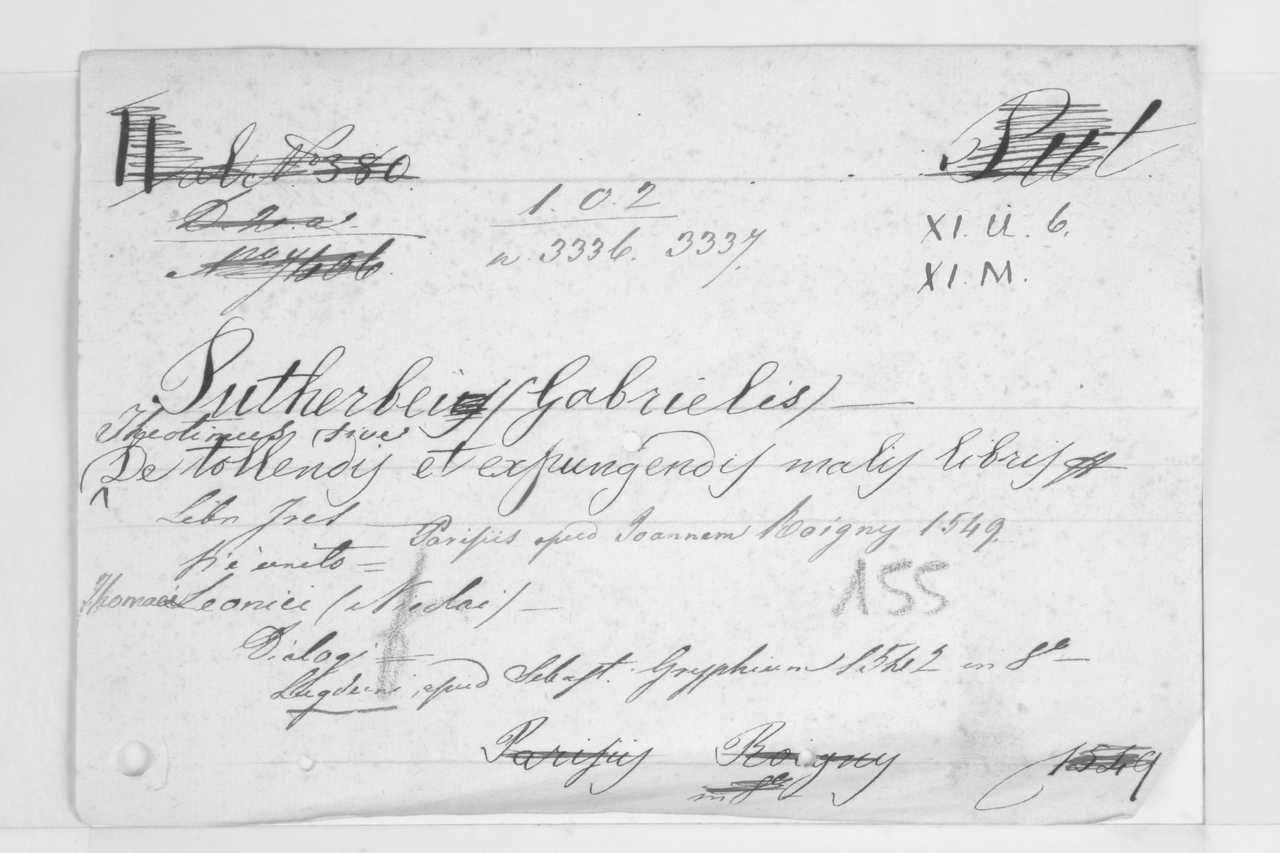 N° 380
Put
D. 2. a.
1. 0. 2
XI. U. 6.
n. 3336. 3337.
XI. M.
Putherbei (Gabrielis) —
Theotimus, sive
De tollendis et expungendis malis libris
Libri Tres
Parisiis apud Joannem Roigny 1549.
Si è unito =
155
Thomaei Leonici (Nicolai) —
Dialogi =
Lugduni, apud Sebast. Gryphium 1542 in 8° —
Parisiis Roigny 1549
in 8°